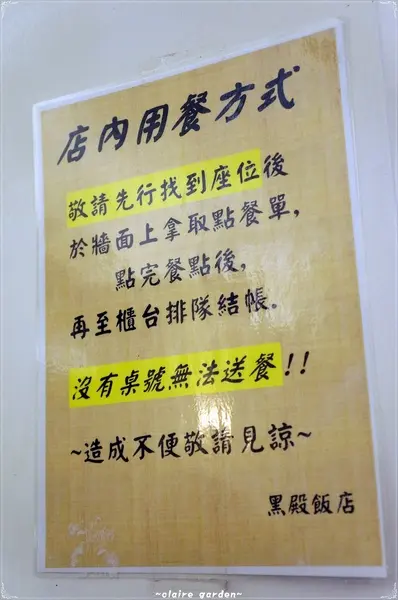 店內用餐方式
敬請先行找到座位後
於牆面上拿取點餐單,
點完餐點後,
再至櫃台排隊結帳.
沒有桌號無法送餐!!
~造成不便敬請見諒~
黑殿飯店
~claire garden~